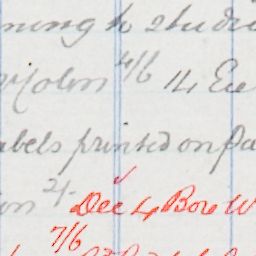 ning to studi
Colin 4/6 14 Eve
abels printed on pa
on 2/- Dec 4 Box W
7/6